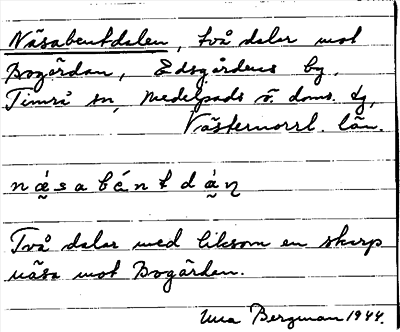 Näsabentdalen, två dalar mot
Bogårdan, Edsgårdens by.
Timrå sn, Medelpads ö. doms. tg,
Västernorrl. län.
nǽ̰sabéntdá̰ṇ
Två dalar med liksom en skarp
näsa mot Bogården.
Una Bergman 1944.